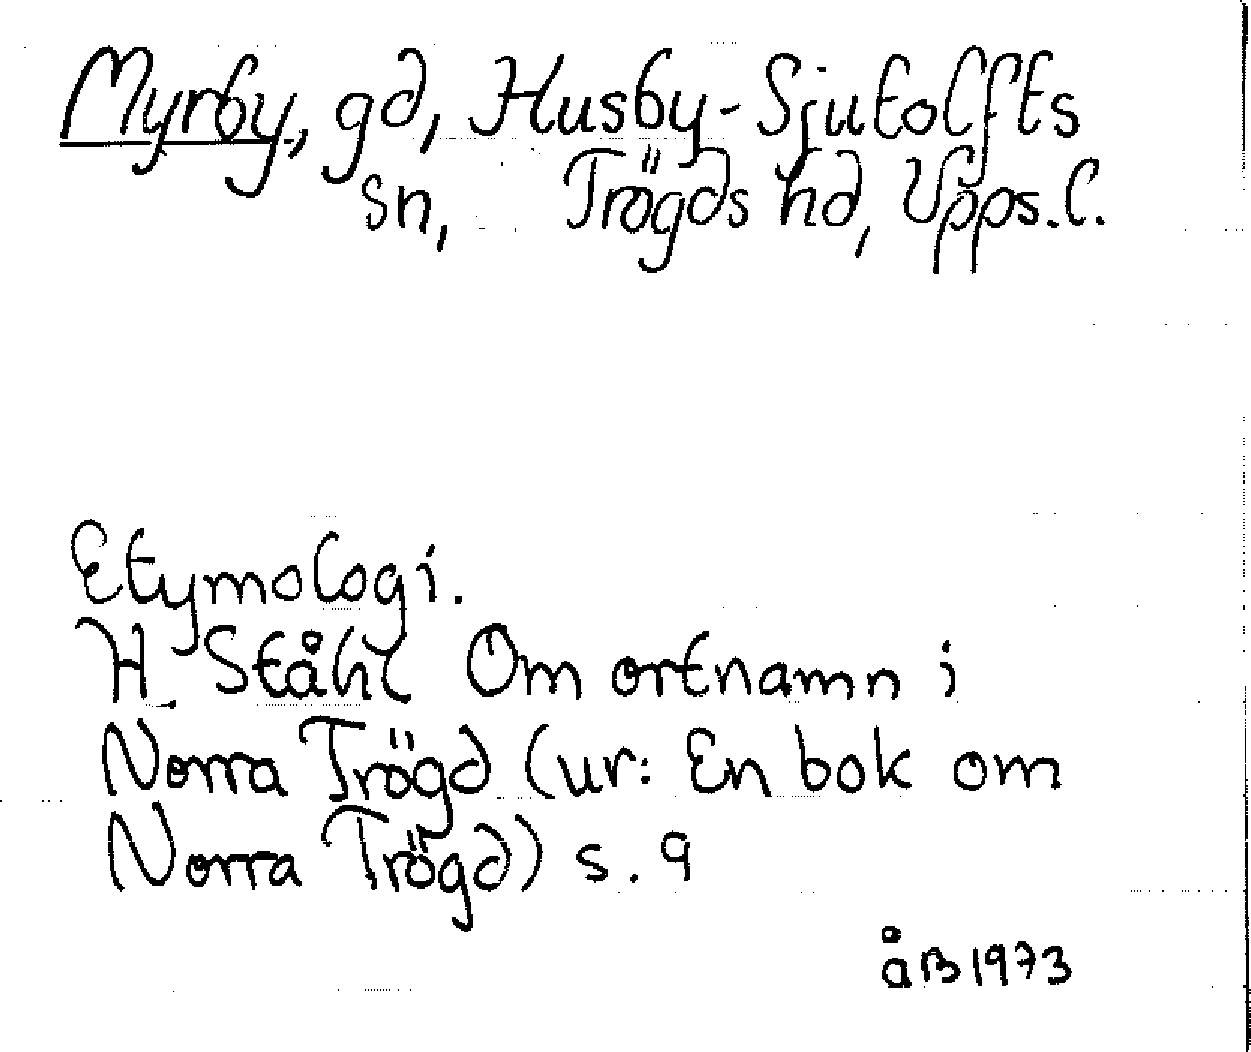 Myrby, gd, Husby-Sjutolfts
sn, Trögds hd, Upps.l.
Etymologi.
H. Ståhl Om ortnamn i
Norra Trögd (ur: En bok om
Norra Trögd) s. 9
åB 1973